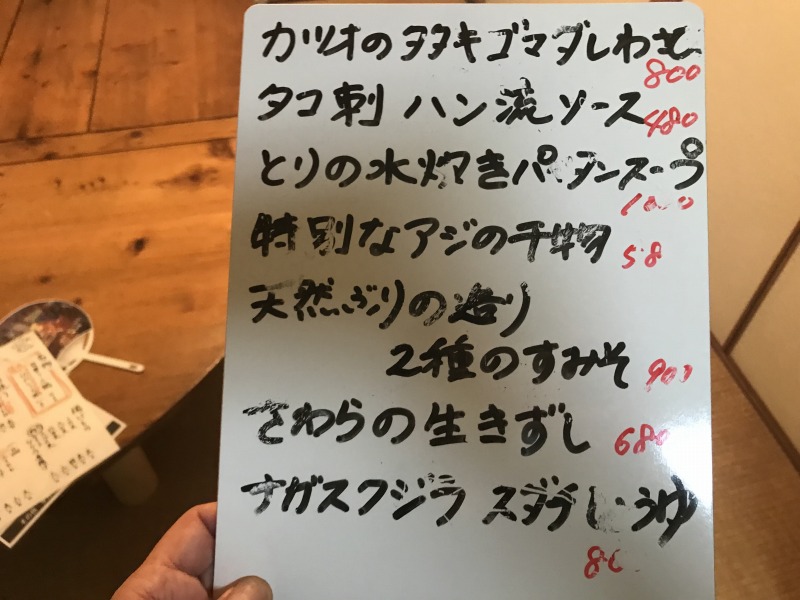 カツオのタタキゴマダレわさび
800
タコ刺 ハン流ソース
480
とりの水炊きパイタンスープ
特別なアジの干物
58
天然ぶりの造り
2種のすみそ
900
さわらの生きずし
680
ナガスクジラ スダチしょうゆ